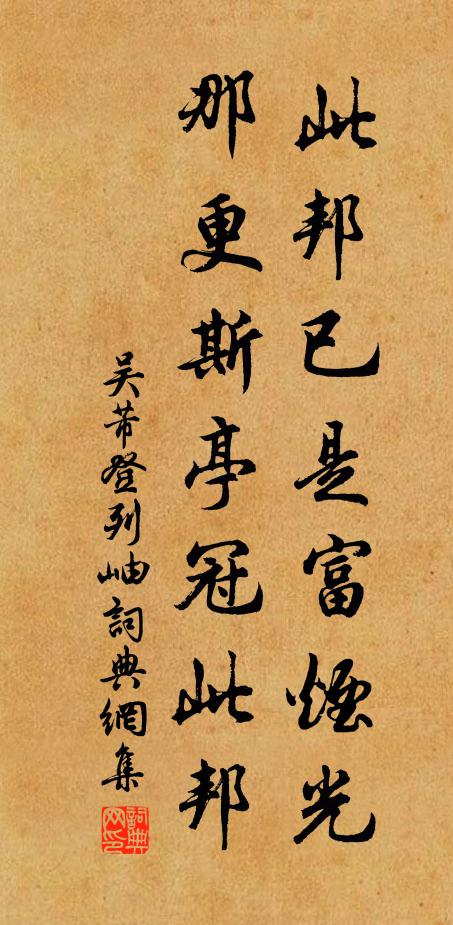 此邦已是富煙光
那更斯亭冠此邦
吴芾登列岫詞典網集
詞典网印